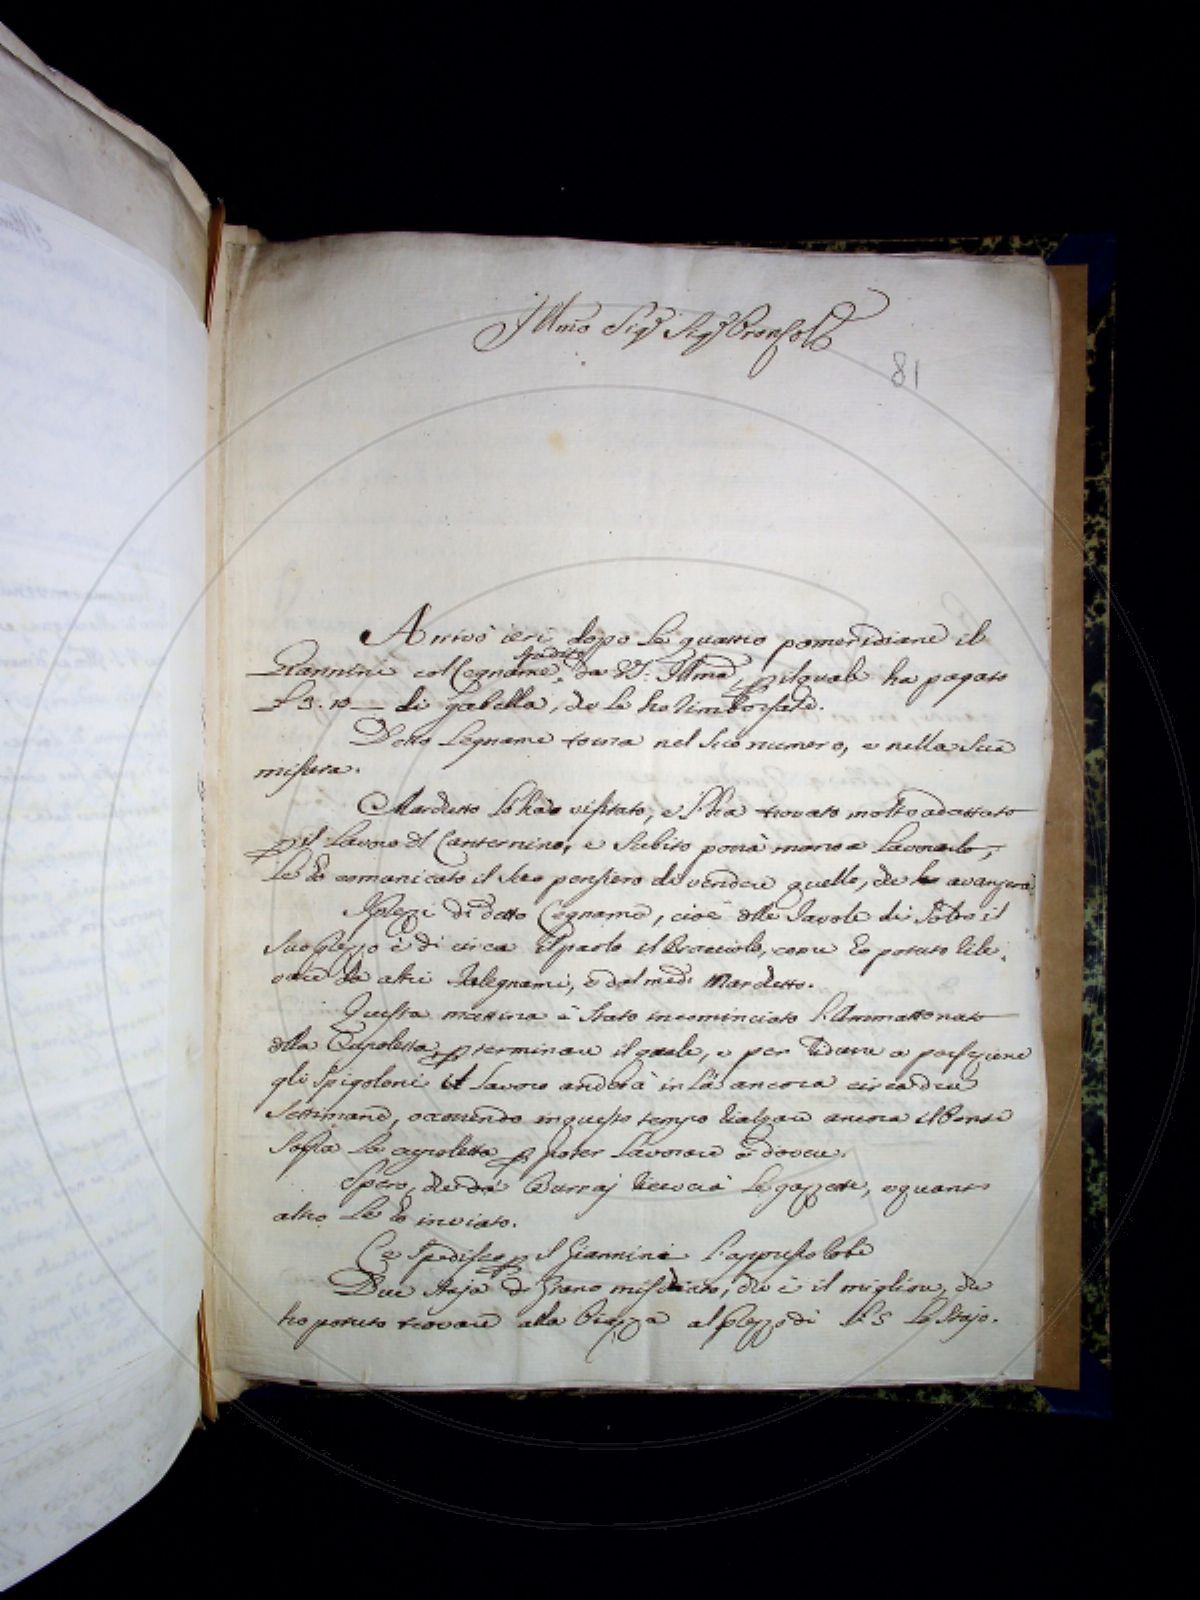 Illmo Sigr Sigr Pron Col
81
Arrivò ieri dopo le quattro pomeridiane il
Giannini col Legname, spedito da VS: Illma, p il quale ha pagato
£ 3. 10 — di gabella, che le ho rimborsate.
Detto Legname torna nel suo numero, e nella sua
misura.
Marchetto lo ha visitato, e l'ha trovato molto adattato
p il Lavoro del Canternino, e subito porrà mano a Lavorarlo,
Le ho comunicato il suo pensiero di vendere quello, che avanzerà
I prezzi di detto Legname, cioè delle Tavole di il
suo prezzo è di circa un paolo il Bracciolo, come ho potuto rile:
vare da altri Falegnami, e dal med: Marchetto.
Questa mattina è stato incominciato l'Ammattonato
della Cupoletta, p terminare il quale, e per ridurre a perfezione
gli Spigoloni il Lavoro anderà in là ancora circa due
Settimane, occorrendo in questo tempo rialzare ancora il Ponte
sopra la cupoletta p poter Lavorare a dovere.
Spero, che da Burraj riceverà le gazzette, e quant
altro Le ho inviato.
Le spedisco p il Giannini l'appresso robe
Due staja di Grano mischiato, che è il migliore, che
ho potuto trovare alla Piazza al prezzo di £ 5 lo Stajo.